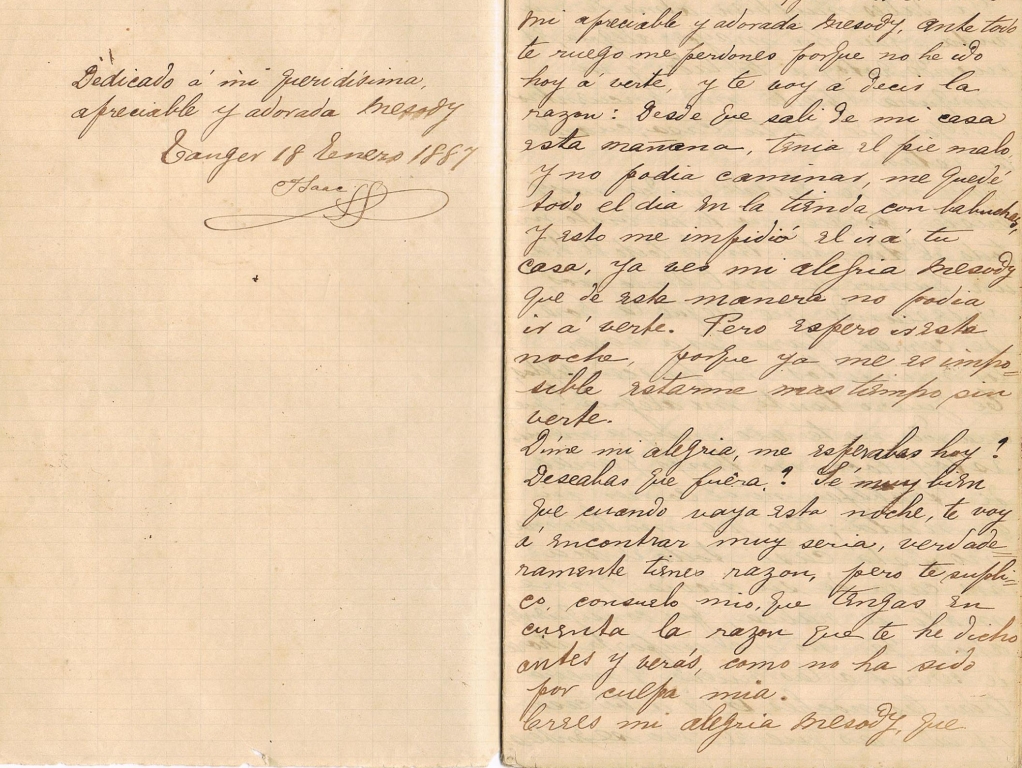 Dedicado á mi queridísima,
apreciable y adorada Mesody
Tanger 18 Enero 1887
Isaac
Mi apreciable y adorada Mesody, ante todo
te ruego me perdones porque no he ido
hoy á verte, y te voy á decir la
razon: Desde que salí de mi casa
esta manana, tenia el pie malo,
y no podia caminar, me quedé
todo el dia en la tienda con babuchas,
y esto me impidió el ir á tu
casa, ya ves mi alegria Mesody
que de esta manera no podia
ir á verte. Pero espero ir esta
noche, porque ya me es impo=
sible estarme mas tiempo sin
verte.
Dime mi alegria, me esperabas hoy?
Deseabas que fuera? Sé muy bien
que cuando vaya esta noche, te voy
á encontrar muy seria, verdade=
ramente tienes razon, pero te supli=
co, consuelo mio, que tengas en
cuenta la razon que te he dicho
antes y verás, como no ha sido
por culpa mia.
Crees mi alegria Mesody, que